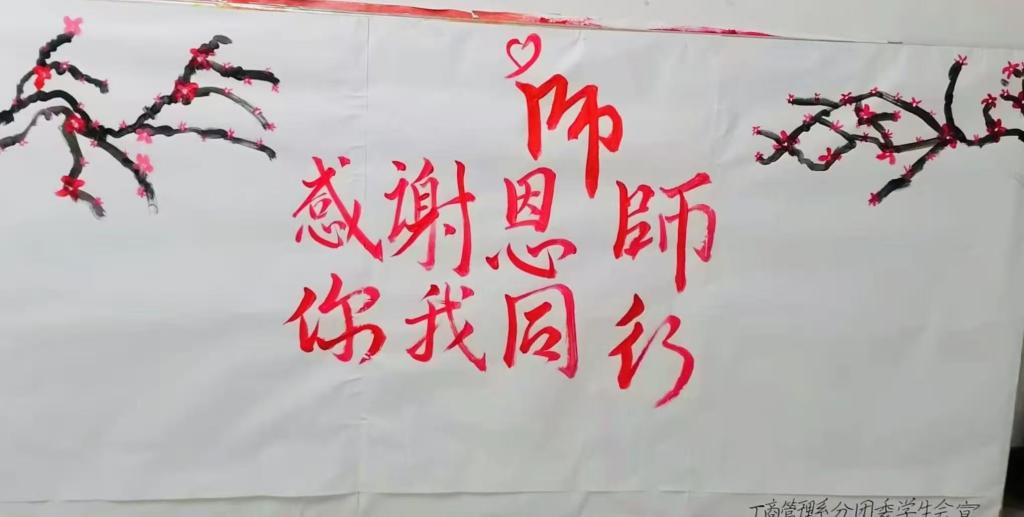 师
感谢恩師
你我同行
工商管理系分团委学生会宣